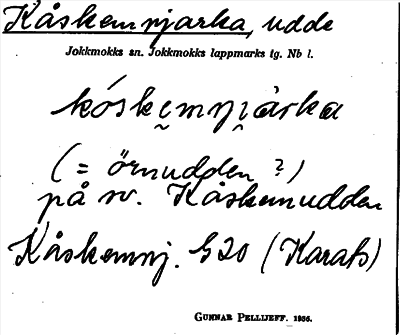 Kåskemnjarka, udde
Jokkmokks sn. Jokkmokks lappmarks tg. Nb l.
kóskemnjàrka
(= örnudden ?)
på sv. Kåskemudden
Kåskemnj. G20 (Karats)
GUNNAR PELLIJEFF. 1956.